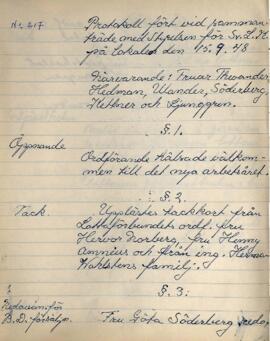 No. 217.
Protokoll fört vid samman-
träde med styrelsen för Sv. L. K.
på lokalen den 15. 9. 48
Närvarande: Fruar Thwander,
Hedman, Ulander, Söderberg,
Hettner och Ljunggren.
§. 1.
Öppnande
Ordförande hälsade välkom-
men till det nya arbetsåret.
§. 2.
Tack.
Upplästes tackkort från
Lottaförbundets ordf. fru
Hervor Norberg, fru Henny
Amnéus och från ing. Herman
Wahlstens familj.
§. 3:
Redovisn. för
B.D. försäljn.
Fru Göta Söderberg redo-